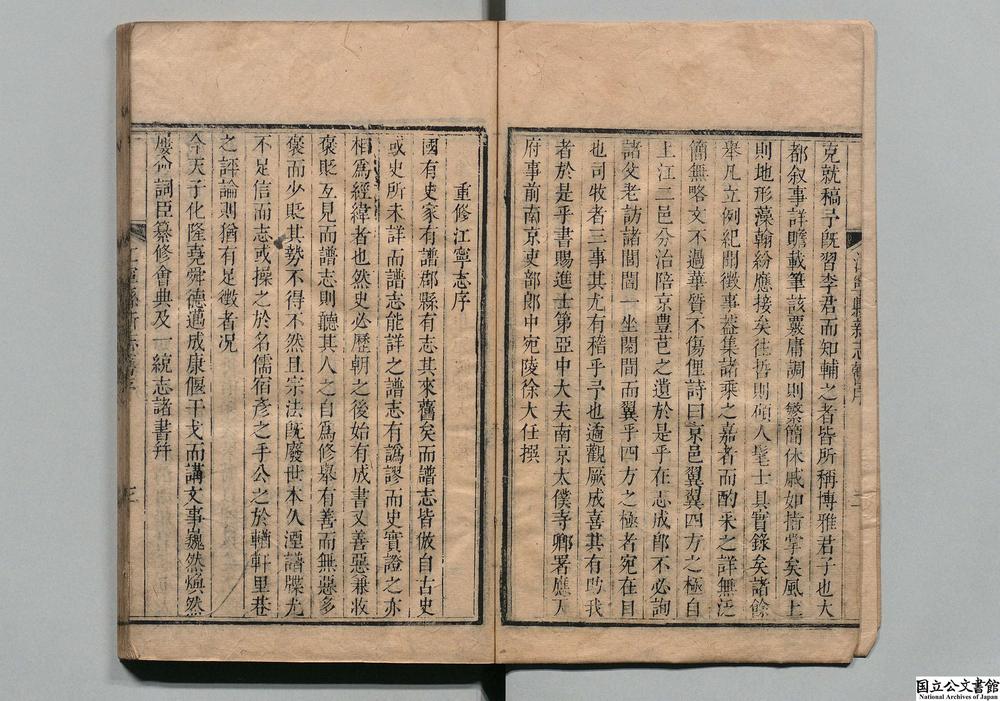 克就稿予既習李君而知輔之者皆所稱博雅君子也大
都叙事詳贍載筆該覈庸調則繁簡休戚如指掌矣風土
則地形藻翰紛應接矣往哲則碩人髦士具實錄矣諸餘
舉凡立例紀開徵事蓋集諸乘之嘉者而酌采之詳無泛
簡無略文不過華質不傷俚詩曰京邑翼翼四方之極自
上江二邑分治陪京豊芑之遺於是乎在志成郎不必詢
諸父老訪諸閭閻一坐閱間而翼乎四方之極者宛在目
也司牧者三事其尤有稽乎予也遹觀厥成喜其有助我
者於是乎書賜進士第亞中大夫南京太僕寺卿署應天
府事前南京吏部郎中宛陵徐大任撰
江寧縣新志舊序
重修江寧志序
國有史家有譜郡縣有志其來舊矣而譜志皆倣自古史
或史所未詳而譜志能詳之譜志有譌謬而史實證之亦
相爲經緯者也然史必歷朝之後始有成書又善惡兼收
褒貶互見而譜志則聽其人之自爲修舉有善而無惡多
褒而少貶其勢不得不然且宗法旣廢世本久湮譜牒尤
不足信而志或操之於名儒宿彥之手公之於輶軒里巷
之評論則猶有足徵者况
今天子化隆堯舜德邁成康偃干戈而講文事巍然煥然
屢命詞臣纂修會典及一統志諸書幷